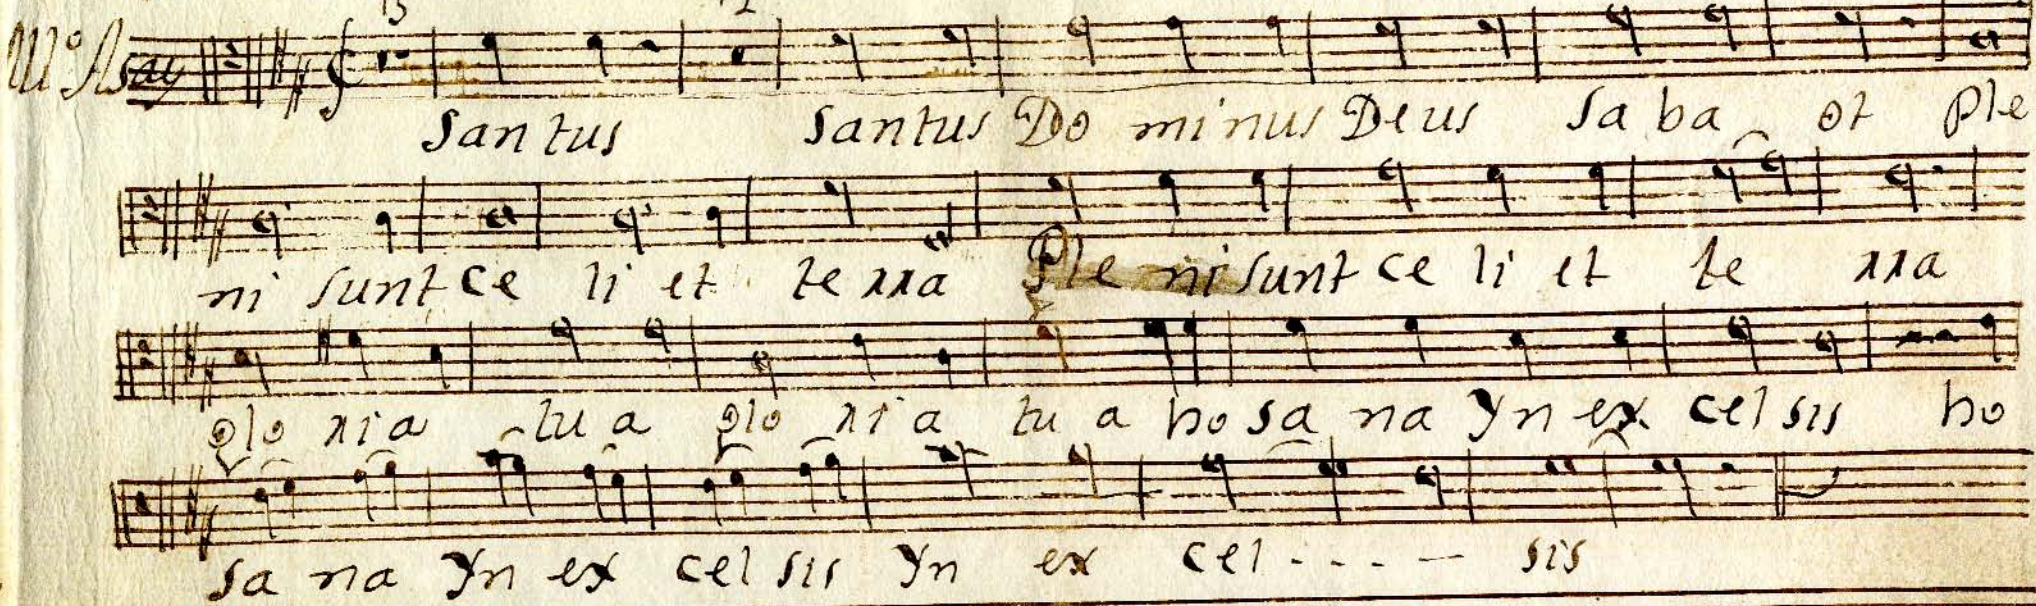 Santus Santus Do minus Deus Sa ba ot Ple
ni sunt ce li et te rra Ple ni sunt ce li et te rra
glo ria tu a glo ria tu a ho sa na Yn ex cel sis ho
sa na Yn ex cel sis Yn ex cel - - - - sis